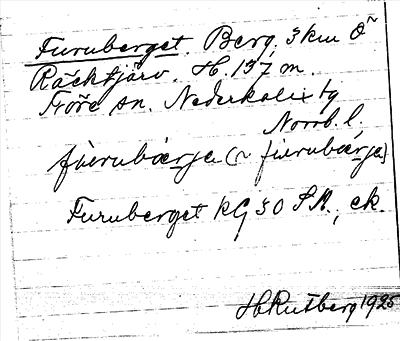 Furuberget. Berg, 3 km Ö
Räcktjärv. H. 137 m.
Töre sn. Nederkalix tg
Norrb. l.
fùrubærje (~ fùrubærja)
Furuberget kG 30 SA., ek.
H Rutberg 1925